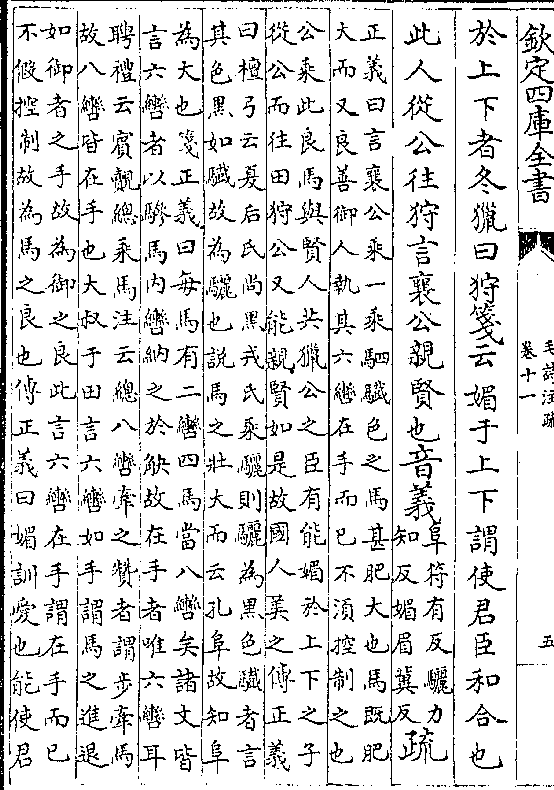 欽定四庫全書
毛詩注疏
卷十一
五
於上下者冬獵曰狩箋云媚于上下謂使君臣和合也
此人從公往狩言襄公親賢也音義
阜符有反驪力
知反媚眉冀反
疏
正義曰言襄公乘一乘駟驖色之馬甚肥大也馬既肥
大而又良善御人執其六轡在手而已不須控制之也
公乘此良馬與賢人共獵公之臣有能媚於上下之子
從公而往田狩公又能親賢如是故國人美之傳正義
曰檀弓云夏后氏尚黒戎氏乘驪則驪為黒色驖者言
其色黒如驖故為驪也説馬之壯大而云孔阜故知阜
為大也箋正義曰每馬有二轡四馬當八轡矣諸文皆
言六轡者以驂馬内轡納之於觖故在手者唯六轡耳
聘禮云賔覿總乘馬注云總八轡牽之贊者謂步牽馬
故八轡皆在手也大叔于田言六轡如手謂馬之進退
如御者之手故為御之良此言六轡在手謂在手而已
不假控制故為馬之良也傳正義曰媚訓愛也能使君